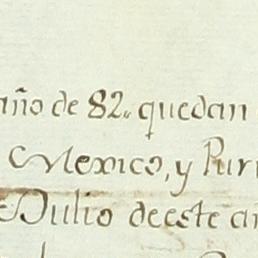 año de 82,, quedan
Mexico, y Puri
Julio de este añ